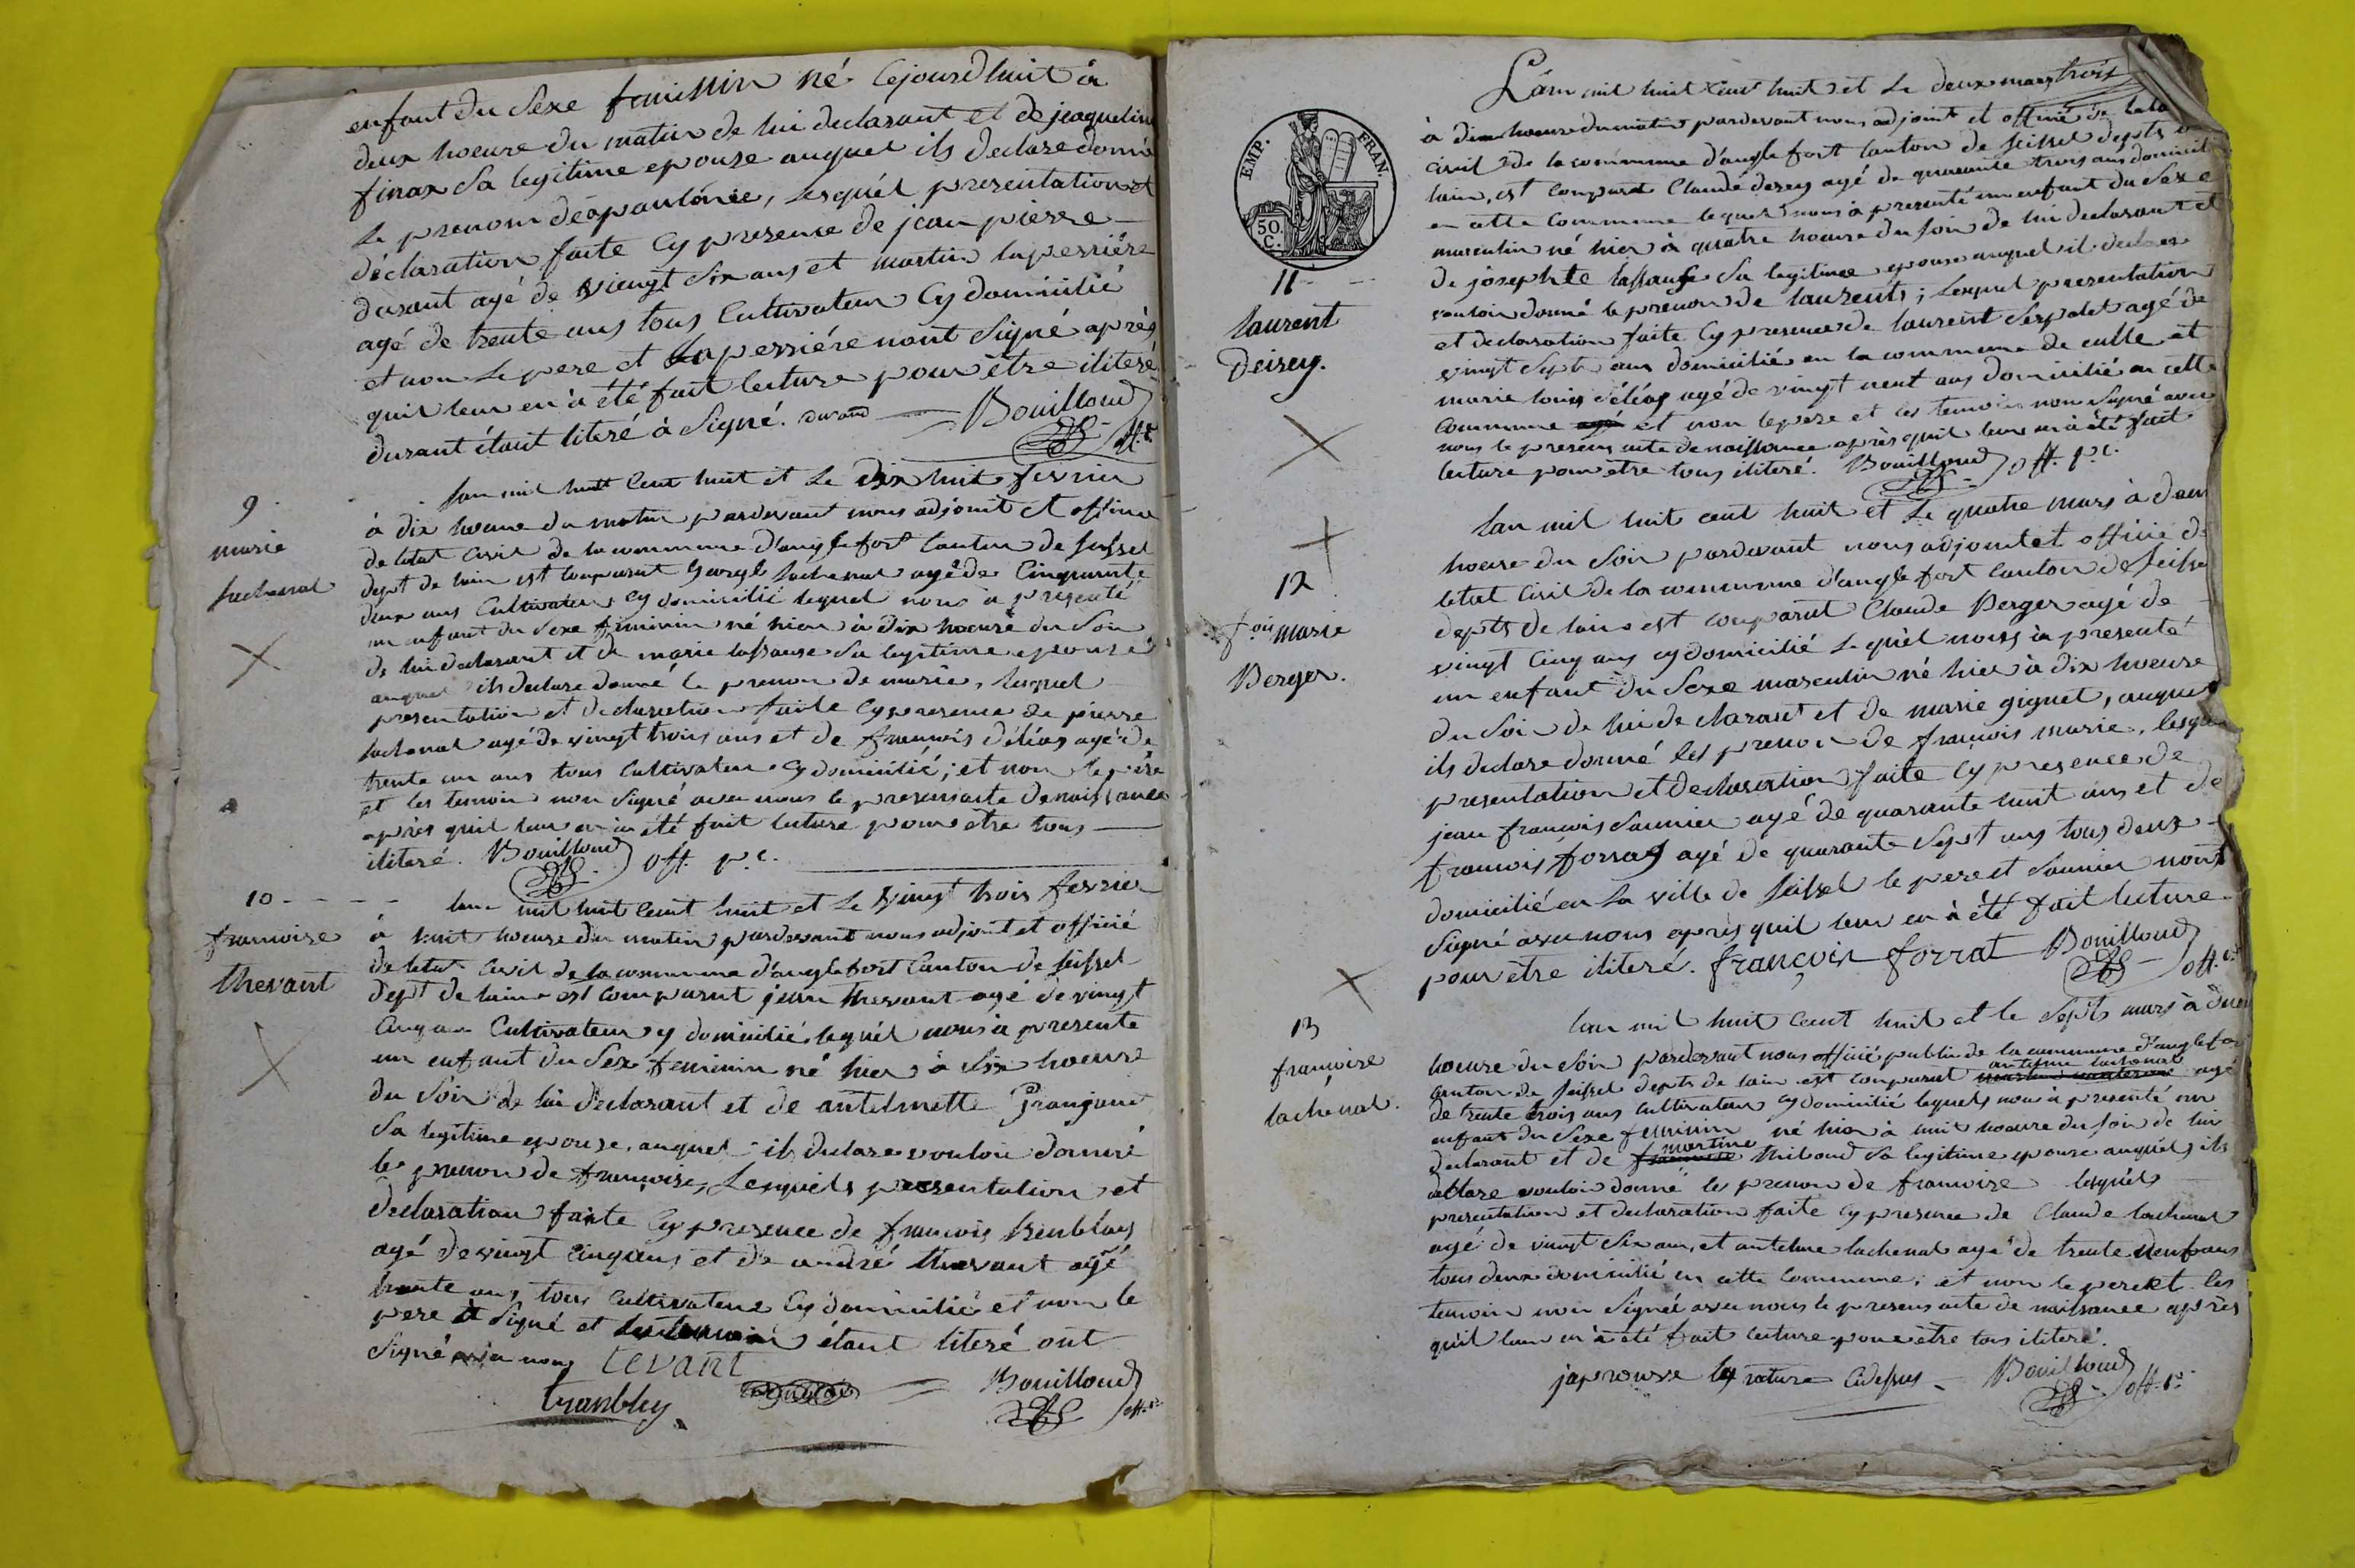 enfant du Sexe feminin né Cejourdhuit à
deux hoeure du matin de lui declarant et de jeaqueline
finax Sa legitime epouse auquel ils declare donné
Le prenom de apaulonie, Lesquél presentation et
déclaration faite Cy presence de jean pierre
durant agé de viengt Six ans et martin laperriére
agé de trente ans tous Cultivateur Cy domicilié
et non Le pere et Laperriére nont Signé aprés
quil leur en à été fait lecture pour être iliteré
durant étant literé à Signé. durand Bouilloud
9
marie
lachenal
lan mil huit Cent huit et Le Dix huit fevrier
à dix hoeure du matin pardevant nous adjoint et officié
de letat Civil de la commune d'anglefort Canton de Seissel
dept de lain est Comparut lachenal agé de Cinquante
deux ans Cultivateur Cy domicilié lequel nous à presenté
un enfant du Sexe feminin né hier à dix hoeure du Soir
de lui declarant et de marie lassause Sa legitime epouse
auquel ils declare donné le prenom de marie, lesquel
presentation et declaration faite Cy presence de pierre
lachenal agé de vingt trois ans et de francois déléas agé de
trente un ans tous Cultivateur Cy domicilié; et non le pére
et les temoin non Signé avec nous le presens acte de naissance
aprés quil leur en à été fait lecture pour etre tous
iliteré. Bouilloud off. p.c.
10
francoise
thevant
lan mil huit Cent huit et Le vingt trois fevrier
à huit hoeure du matin pardevant nous adjoint et officié
de letat Civil de la commune d'anglefort Canton de Seissel
dept de lain est Comparut jean thevant agé de vingt
Cinq ans Cultivateur Cy domicilié lequél nous à presente
un enfant du Sexe feminin né hier à Six hoeure
du Soir de lui declarant et de antelmette
Sa legitime epouse, auquel ils declare vouloir donné
le prenom de francoise, Lesquels presentation et
declaration faite Cy presence de francois
agé de vingt Cinq ans et de andré thevant agé
trente ans, tous Cultivateur Cy domicilié et non le
pere et Signé et les temoin étant literé ont
Signé avec nous tevant
tranbley Bouilloud
Lan mil huit Cent huit et Le deux mars trois
EMP. FRAN.
50. C.
à dix hoeure du matin pardevant nous adjoint et officié de letat
Civil de la commune d'anglefort Canton de Seissel depts de
lain, est Comparut Claude dezey agé de quarante trois ans domicilié
en cette Commune lequel nous à presenté un enfant du Sexe
masculin né hier à quatre hoeure du Soir de lui declarant et
de josephte lassause Sa legitime epouse auquel il declare
vouloir donné le prenom de laurents; Lesquel presentation
et declaration faite Cy presence de laurent Serpolet agé de
vingt Sept ans domicilié en la commune de culle et
marie louis déléas agé de vingt neuf ans domicilié en cette
Commune et non le pere et les temoin non Signé avec
nous le presens acte de naissance aprés quil leur en à été fait
lecture pour être tous iliteré. Bouilloud off. p.c.
11
laurent
Deisey.
lan mil huit cent huit et Le quatre mars à deux
hoeure du Soir pardevant nous adjoint et officié de
letat Civil de la commune d'anglefort Canton de Seissel
depts de lain est comparut Claude Berger agé de
vingt Cinq ans cy domicilié Lequél nous à presenté
un enfant du Sexe masculin né hier à dix hoeure
du Soir de lui declarant et de marie gignet, auquel
ils declare donné les prenom de françois marie, lesquel
presentation et declaration faite Cy presence de
jean francois Saunier agé de quarante huit ans et de
francois forras agé de quarante Sept ans tous deux
domicilié en La ville de Seissel le pere et Saunier nont
Signé avec nous aprés quil leur en à été fait lecture
pour être iliteré. françois forrat Bouilloud off.
12
f.ois marie
Berger.
13
françoise
lachenal.
lan mil huit Cent huit et le Septs mars à deux
hoeure du Soir pardevant nous officié public de la commune d'anglefor
antelme lachenal
Canton de Seissel depts de lain est Comparut agé
de trente trois ans Cultivateur Cy domicilié lequels nous à presenté un
enfant du Sexe feminin né hier à huit hoeure du Soir de lui
martine
declarant et de thiboud Sa legitime epouse auquéls ils
declare vouloir donné les prenom de francoise lesquéls
presentation et declaration faite Cy presence de Claude lachenal
agé de vingt Six ans, et antelme lachenal agé de trente deux ans
tous deux domicilié en cette Commune; et non le pere et les
temoin non Signée avec nous le presens acte de naissance aprés
quil leur en à été fait lecture pour être tous iliteré.
japrouve les rature Cidessus Bouilloud off.